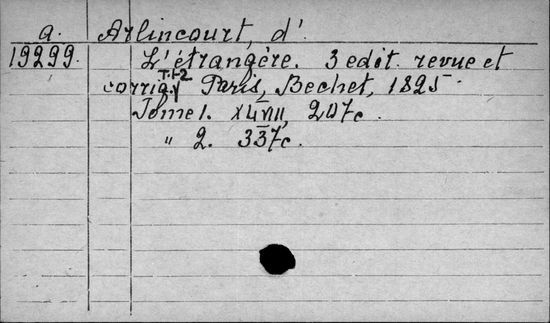 a. Arlincourt, d'.
19299. L'étrangère. 3 edit. revue et
T.1-2
corrig. Paris, Bechet, 1825.
Tome 1. XLVIII, 207c.
" 2. 337c.